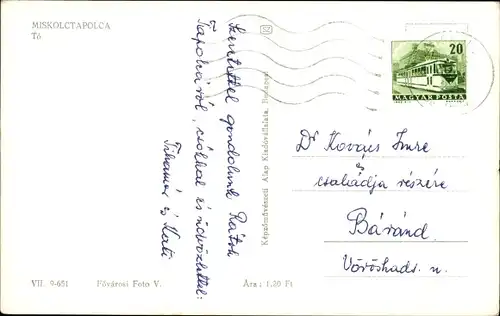 MISKOLCTAPOLCA
Tó
Szeretettel gondolunk Rátok
Tapolcáról, csókkal és üdvözlettel:
Tihamér és Kati
VII. 9-651 Fővárosi Foto V. Ára: 1,20 Ft
Képzőművészeti Alap Kiadóvállalata, Budapest
20
MAGYAR POSTA
Dr Kovács Imre
és
családja részére
Báránd
Vöröshads. u.